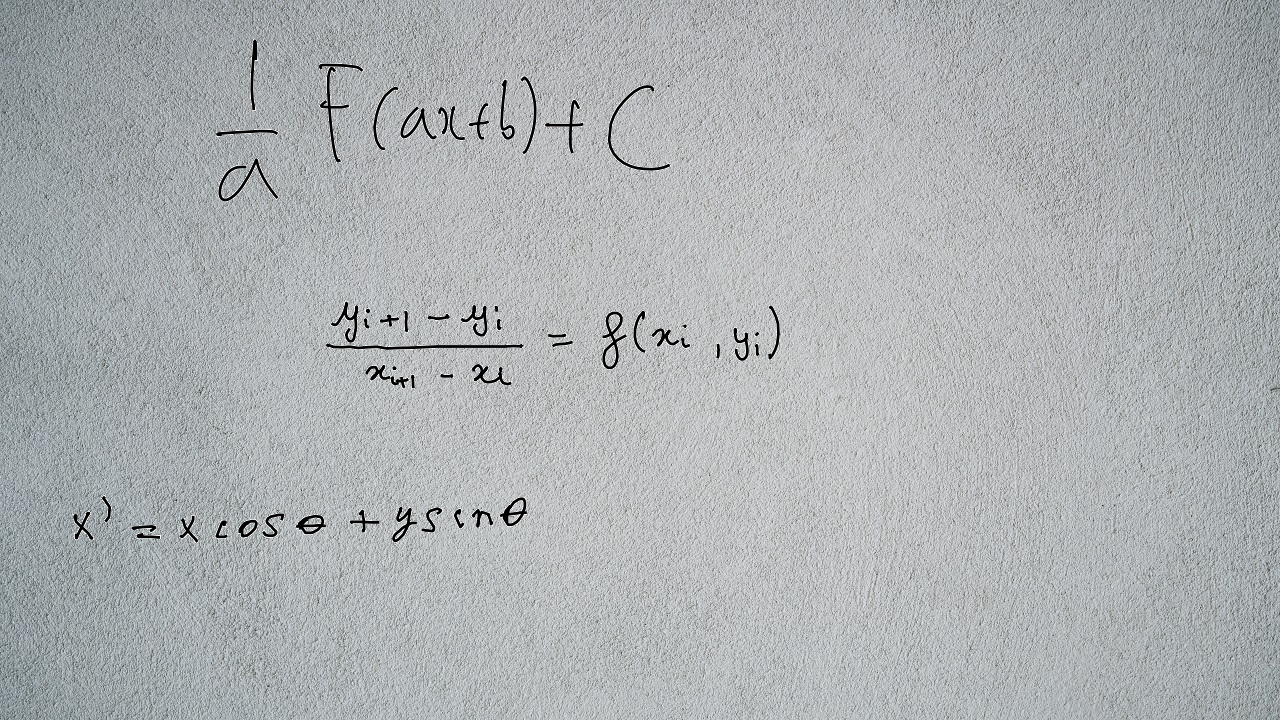 \frac{1}{a} F(ax+b)+C
\frac{y_{i+1} - y_i}{x_{i+1} - x_i} = f(x_i, y_i)
x' = x cos θ + y sin θ